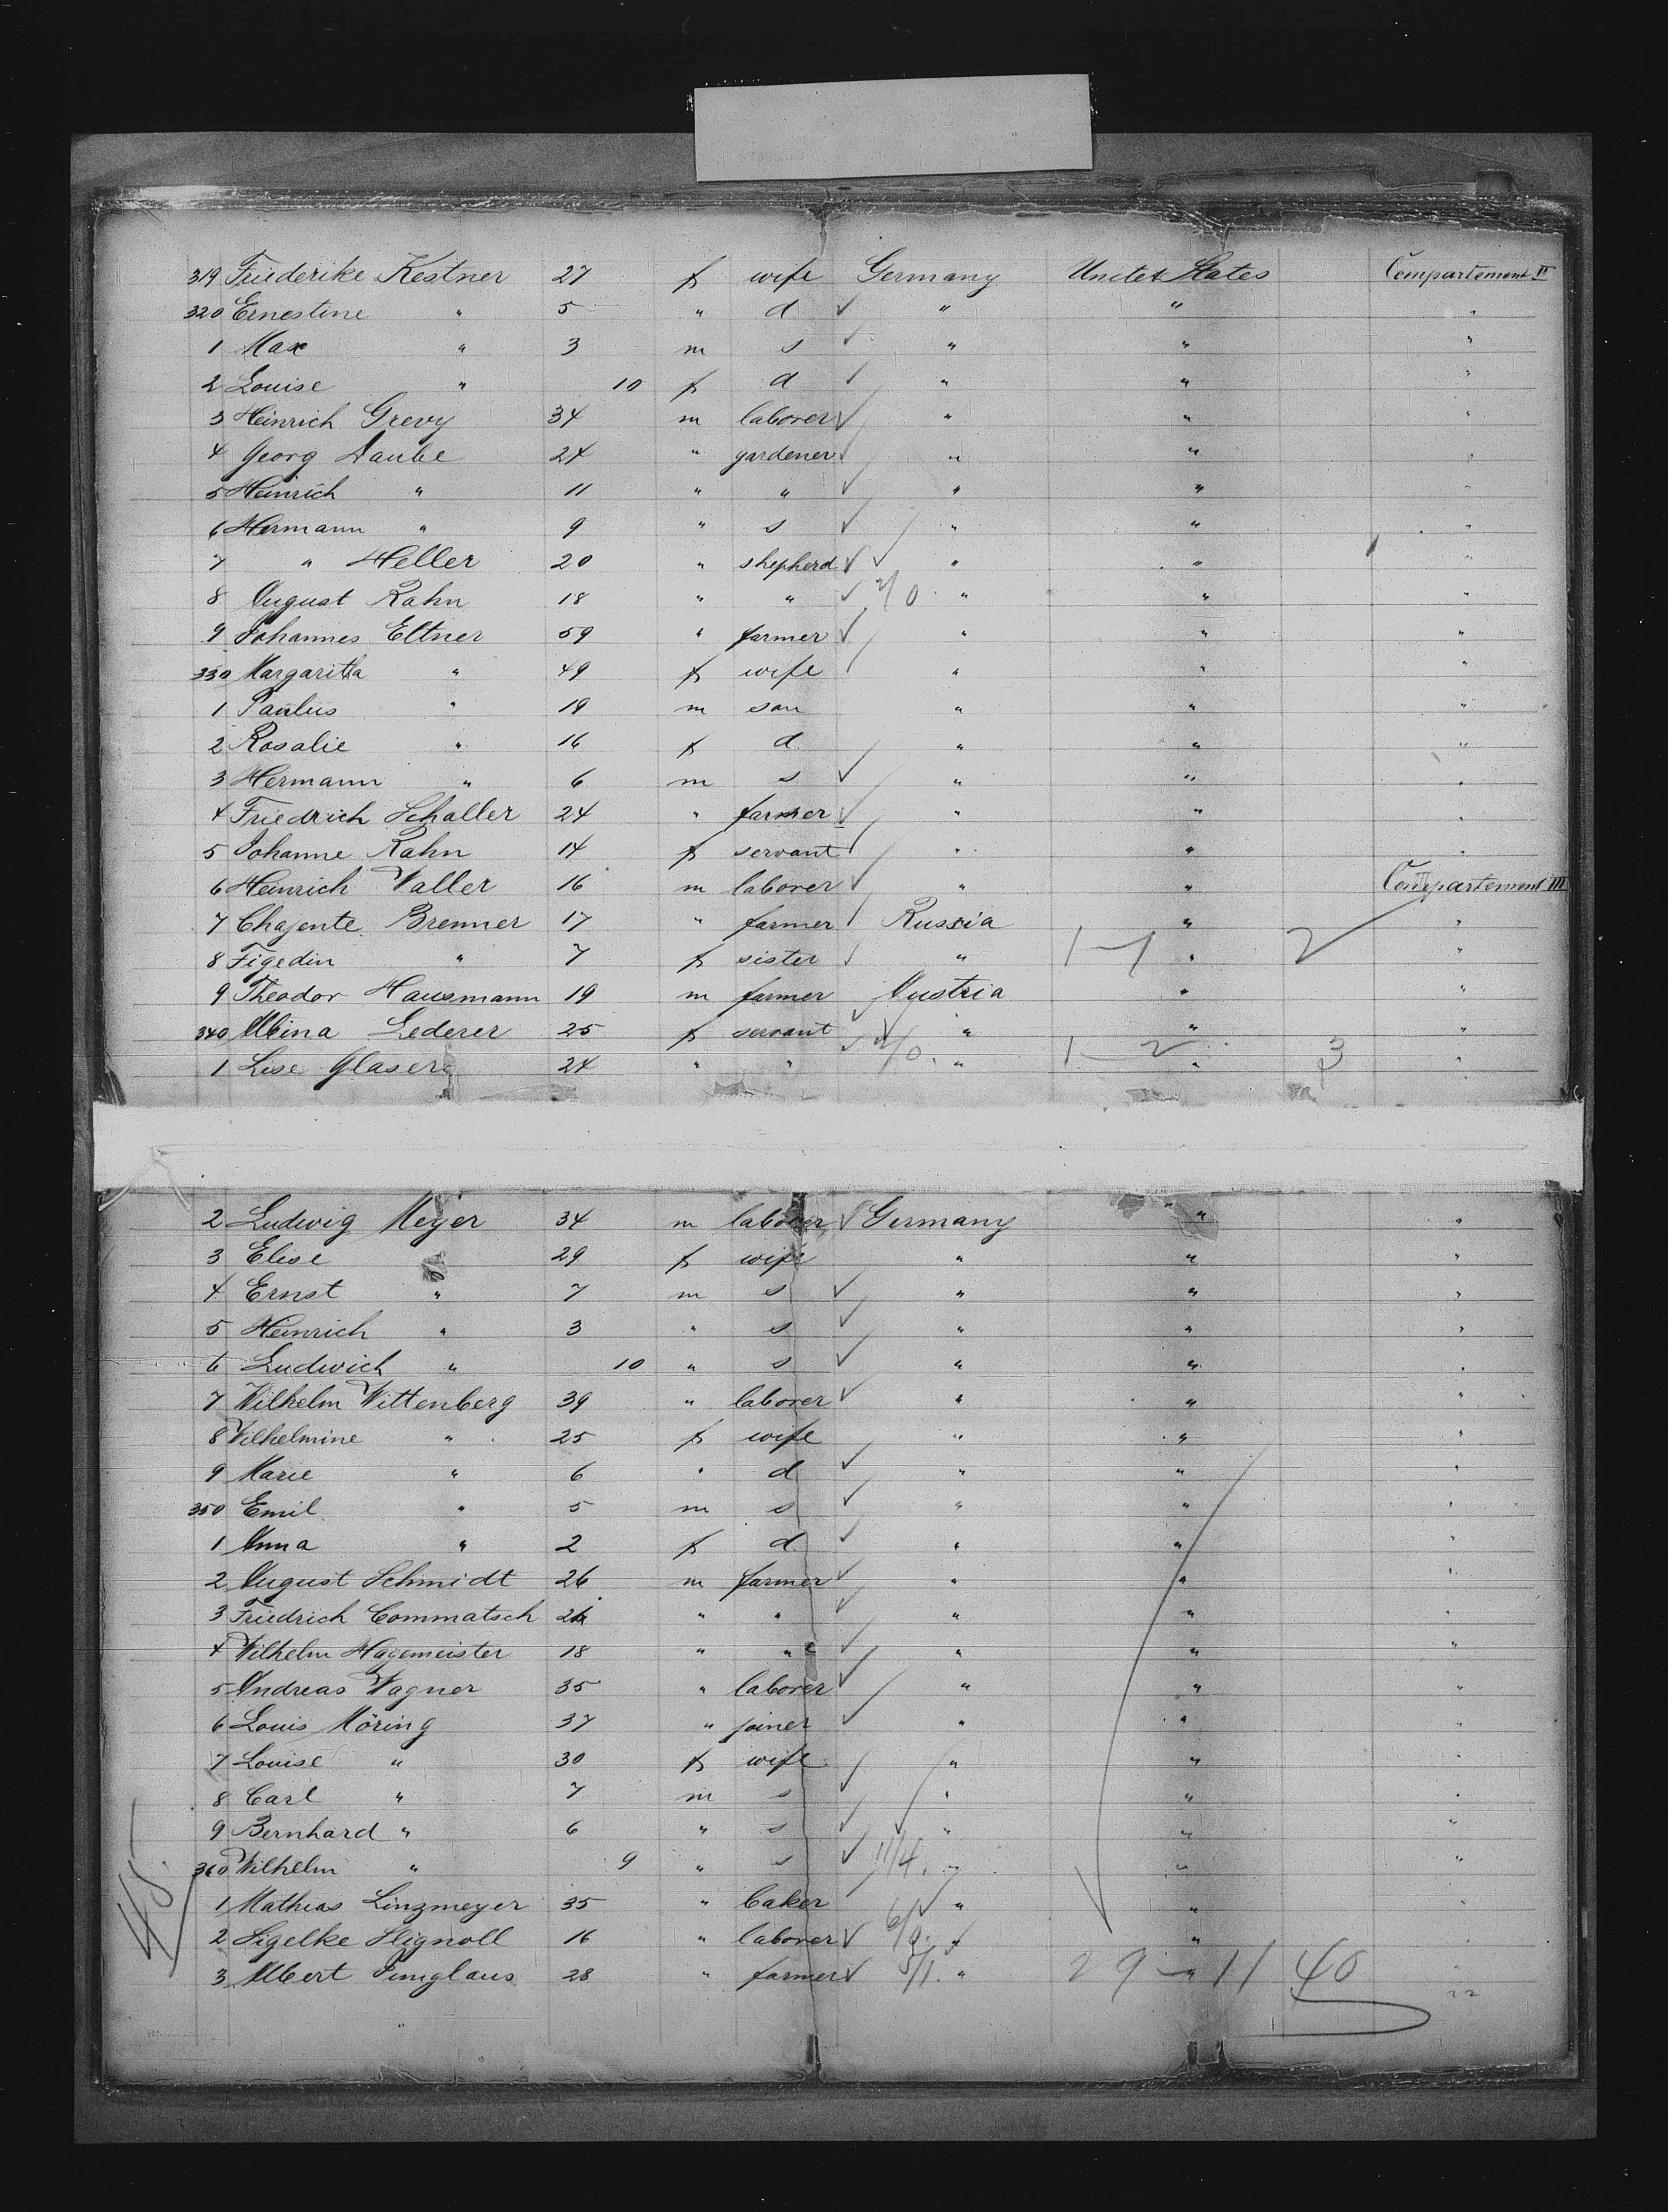 319 Friederike Kestner 27 f wife Germany United States Compartement II
320 Ernestine " 5 " d " " "
1 Max " 3 m s " " "
2 Louise " 10 f d " " "
3 Heinrich Grevy 34 m laborer " " "
4 Georg Daube 24 " gardener " " "
5 Heinrich " 11 " " " " "
6 Hermann " 9 " s " " "
7 " Heller 20 " shepherd " " "
8 August Rahn 18 " " 2/0 " " "
9 Johannes Eltner 59 " farmer " " "
330 Margaritha " 49 f wife " " "
1 Paulus " 19 m son " " "
2 Rosalie " 16 f d " " "
3 Hermann " 6 m s " " "
4 Friedrich Schaller 24 " farmer " " "
5 Johanne Rahn 14 f servant " " "
6 Heinrich Valler 16 m laborer " " Compartement III
7 Chajente Brenner 17 " farmer Russia " "
8 Figedin " 7 f sister " 1-1 " 2 "
9 Theodor Hausmann 19 m farmer Austria " "
340 Albina Lederer 25 f servant " " "
1 Lise Glaser 24 " " 2/0. " 1-2 " 3 "
2 Ludwig Meyer 34 m laborer Germany " "
3 Elise " 29 f wife " " "
4 Ernst " 7 m s " " "
5 Heinrich " 3 " s " " "
6 Ludwich " 10 " s " " "
7 Wilhelm Wittenberg 39 " laborer " " "
8 Wilhelmine " 25 f wife " " "
9 Marie " 6 " d " " "
350 Emil " 5 m s " " "
1 Anna " 2 f d " " "
2 August Schmidt 26 m farmer " " "
3 Friedrich Commatsch " " " " "
4 Wilhelm Hagemeister 18 " " " " "
5 Andreas Wagner 35 " laborer " " "
6 Louis Möring 37 " joiner " " "
7 Louise " 30 f wife " " "
8 Carl " 7 m s " " "
9 Bernhard " 6 " s " " "
360 Wilhelm " 9 " s 11/4. " " "
1 Mathias Linzmeyer 35 " baker " " "
2 Sigelke Slignoll 16 " laborer 6/0. " " "
3 Albert Junglaus 28 " farmer 5/1. " 29 - " 11 40 "